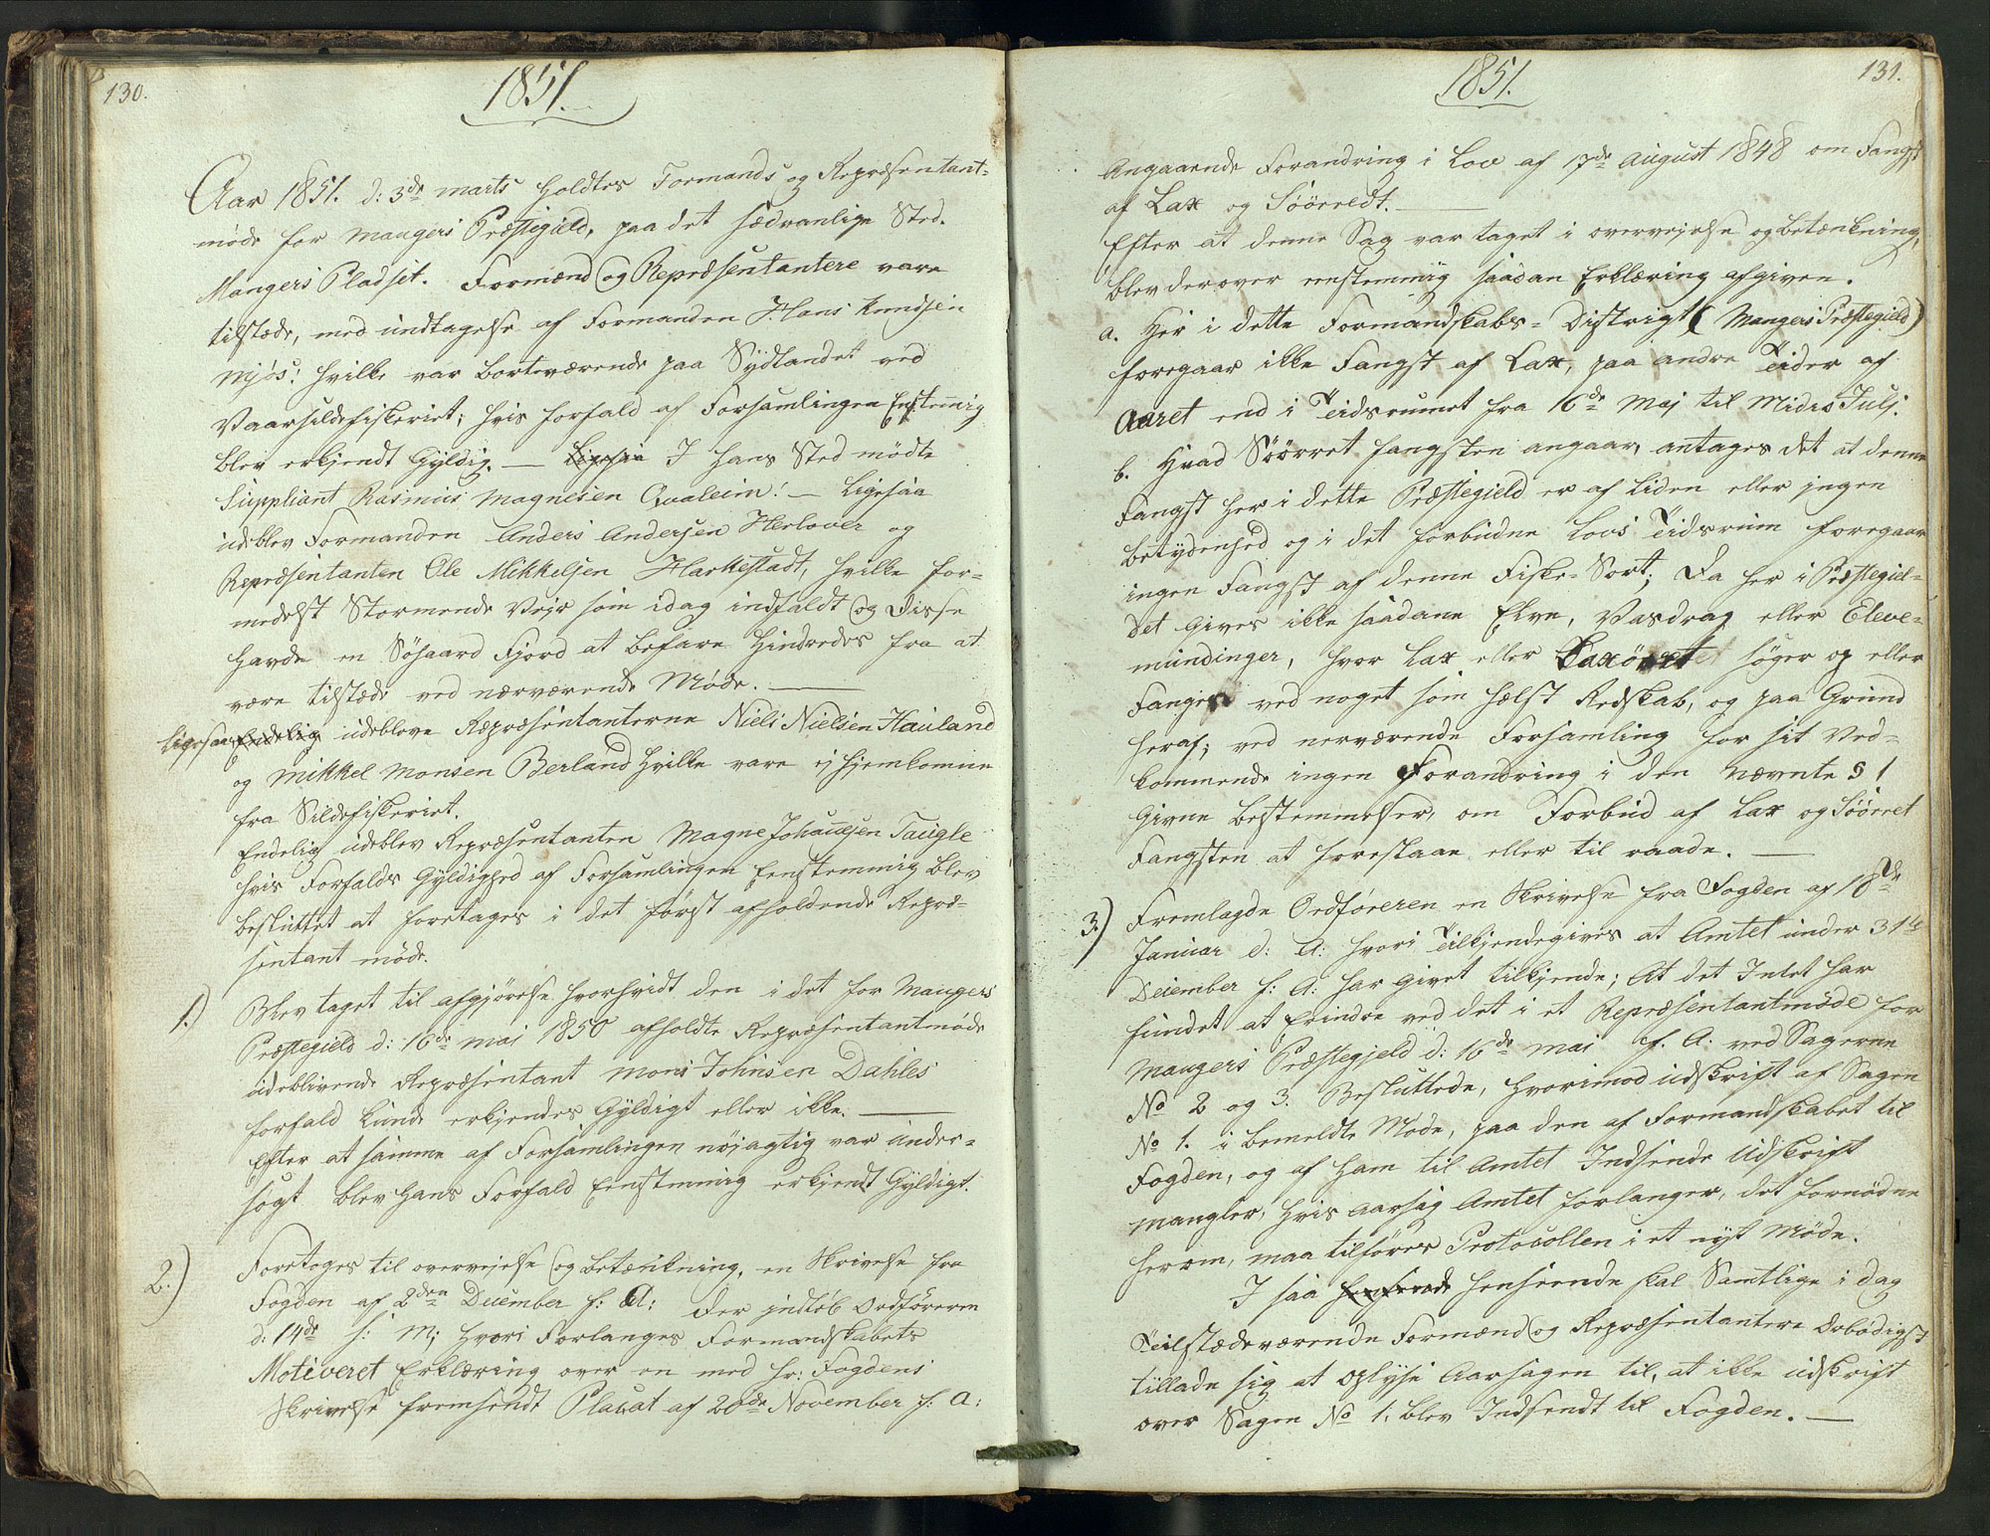 130.
1851.
Aar 1851. d: 3de marts Holdtes Formands og Repræsentant-
møde for Mangers Præstegield, paa det sædvanlige Sted.
Mangers Pladset. Formænd og Repræsentantere vare
tilstæde, med undtagelse af Formanden Hans Knudsen
Mjøs: hvilke var borteværende paa Sydlandet ved
Vaarsildefiskeriet; hvis forfald af Forsamlingen Enstemig
blev erkjendt Gyldig. — Ligesaa I Hans Sted mødte
Suppliant Rasmus Magnesen Qvaleim! — Ligesaa
udeblev Formanden Anders Andersen Herlover og
Repræsentanten Ole Mikkelsen Harkestadt, hvilke for-
medelst Stormende Vejr som idag indfaldt og disse
havde en Søhaard Fjord at befare Hindredes fra at
være tilstæde ved nærværende Møde. —
Ligesaa Endelig udebleve Repræsentanterne Niels Nielsen Hauland
og Mikkel Monsen Berland Hvilke vare ej hjemkomne
fra Sildefiskeriet.
Endelig udeblev Repræsentanten Magne Johannesen Taugle
hvis Forfalds Gyldighed af Forsamlingen Eenstemmig blev
besluttet at foretages i det først afholdende Repræ-
sentant møde.
1.) Blev taget til afgjørelse hvorhvidt den i det for Mangers
Præstegield d: 16de mai 1850 afholdte Repræsentantmøde
udeblivende Repræsentant Mons Johnsen Dahles
forfald kunde erkjendes Gyldigt eller ikke. —
Efter at samme af Forsamlingen nøjagtig var under-
søgt blev Hans Forfald Eenstemmig erkjendt Gyldigt.
2.) Foretoges til overvejelse og betænkning, en Skrivelse fra
Fogden af 2den December f: A: der indløb Ordføreren
d: 14de s: M; hvori Forlanges Formandskabets
Motiveret Erklæring over en med Hr: Fogdens
Skrivelse fremsendt Placat af 20de November f: A:
131.
1851.
Angaaende Forandring i Lov af 7de August 1848 om Fangst
af Lax og Søørredt. —
Efter at denne Sag var taget i overvejelse og betænkning,
blev derover eenstemmig saadan Erklæring afgiven.
a. Her i dette Formandskabs-Distrigt (Mangers Præstegield)
foregaar ikke Fangst af Lax, paa andre Tider af
Aaret end i Tidsrumet fra 16de Maj til Midts Julj.
b. Hvad Søørret fangsten angaar, antages det at denne
Fangst her i dette Præstegield er af liden eller ingen
betydenhed og i det forbudne Lovs Tidsrum foregaar
ingen Fangst af denne Fiske-Sort; Da her i Præstegiel-
det Gives ikke saadane Elve, Vasdrag eller Eleve-
mundinger, hvor Lax eller Laxørretet søger op eller
Fanges ved noget som hælst Redskab, og paa Grund
heraf; ved nerværende Forsamling for sit Ved-
kommende ingen Forandring i den nævnte § 1
Givne bestemmelser, om Forbud af Lax og Søørret
Fangsten at foreslaae eller til raade. —
3.) Fremlagde Ordføreren en Skrivelse fra Fogden af 18de
Januar d: A: hvori Tilkjendegives at Amtet under 31te
December f: A: har givet tilkjende; At det Intet har
fundet at Erindre ved det i et Repræsentantmøde for
Mangers Præstegjeld d: 16de mai f. A: ved Sagerne
No 2 og 3. Besluttede, hvorimod udskrift af Sagen
No 1. i bemeldte Møde, paa den af Formandskabet til
Fogden, og af Ham til Amtet Indsende Udskrift
mangler, hvis Aarsag Amtet forlanger, det fornødne
herom, maa tilføres Protocollen i et nyt Møde.
I saa henseende henseende skal Samtlige i dag
Tilstædeværende Formænd og Repræsentantere Ærbødigst
tillade sig at oplyse Aarsagen til, at ikke udskrift
over Sagen No 1. blev Indsendt til Fogden. —